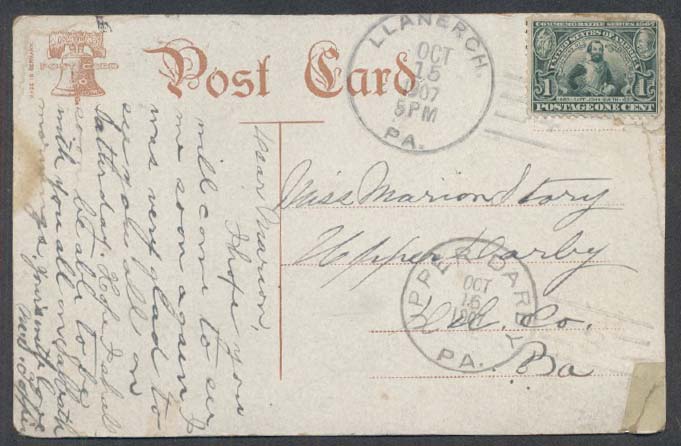 Post Card
LLANERCH,
OCT
15
1907
5PM
PA.
COMMEMORATIVE SERIES 1907
UNITED STATES OF AMERICA
1 1
POSTAGE ONE CENT
Miss Marion Story
Upper Darby
Del. Co.
Pa
UPPER DARBY
OCT
16
1907
PA.
Dear Marion,
I hope you
will come to see
me soon again. I
was very glad to
see you all on
Satterday. Hope Isabel
will soon be able to be
with you all on Sabbath
mornings. Yours with love